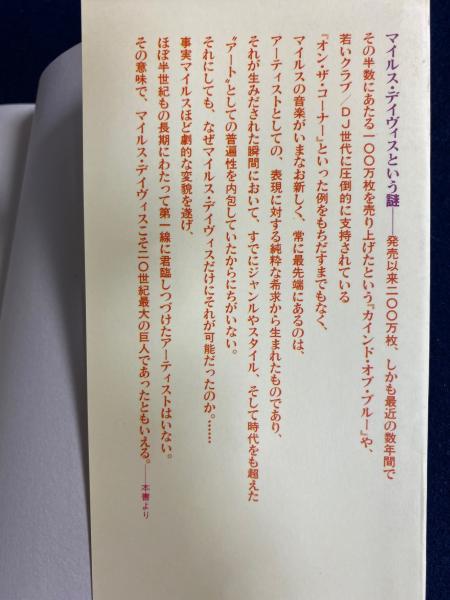 マイルス・デイヴィスという謎――発売以来二〇〇万枚、しかも最近の数年間で
その半数にあたる一〇〇万枚を売り上げたという『カインド・オブ・ブルー』や、
若いクラブ／DJ世代に圧倒的に支持されている
『オン・ザ・コーナー』といった例をもちだすまでもなく、
マイルスの音楽がいまなお新しく、常に最先端にあるのは、
アーティストとしての、表現に対する純粋な希求から生まれたものであり、
それが生みだされた瞬間において、すでにジャンルやスタイル、そして時代をも超えた
“アート”としての普遍性を内包していたからにちがいない。
それにしても、なぜマイルス・デイヴィスだけにそれが可能だったのか。……
事実マイルスほど劇的な変貌を遂げ、
ほぼ半世紀もの長期にわたって第一線に君臨しつづけたアーティストはいない。
その意味で、マイルス・デイヴィスこそ二〇世紀最大の巨人であったともいえる。――本書より